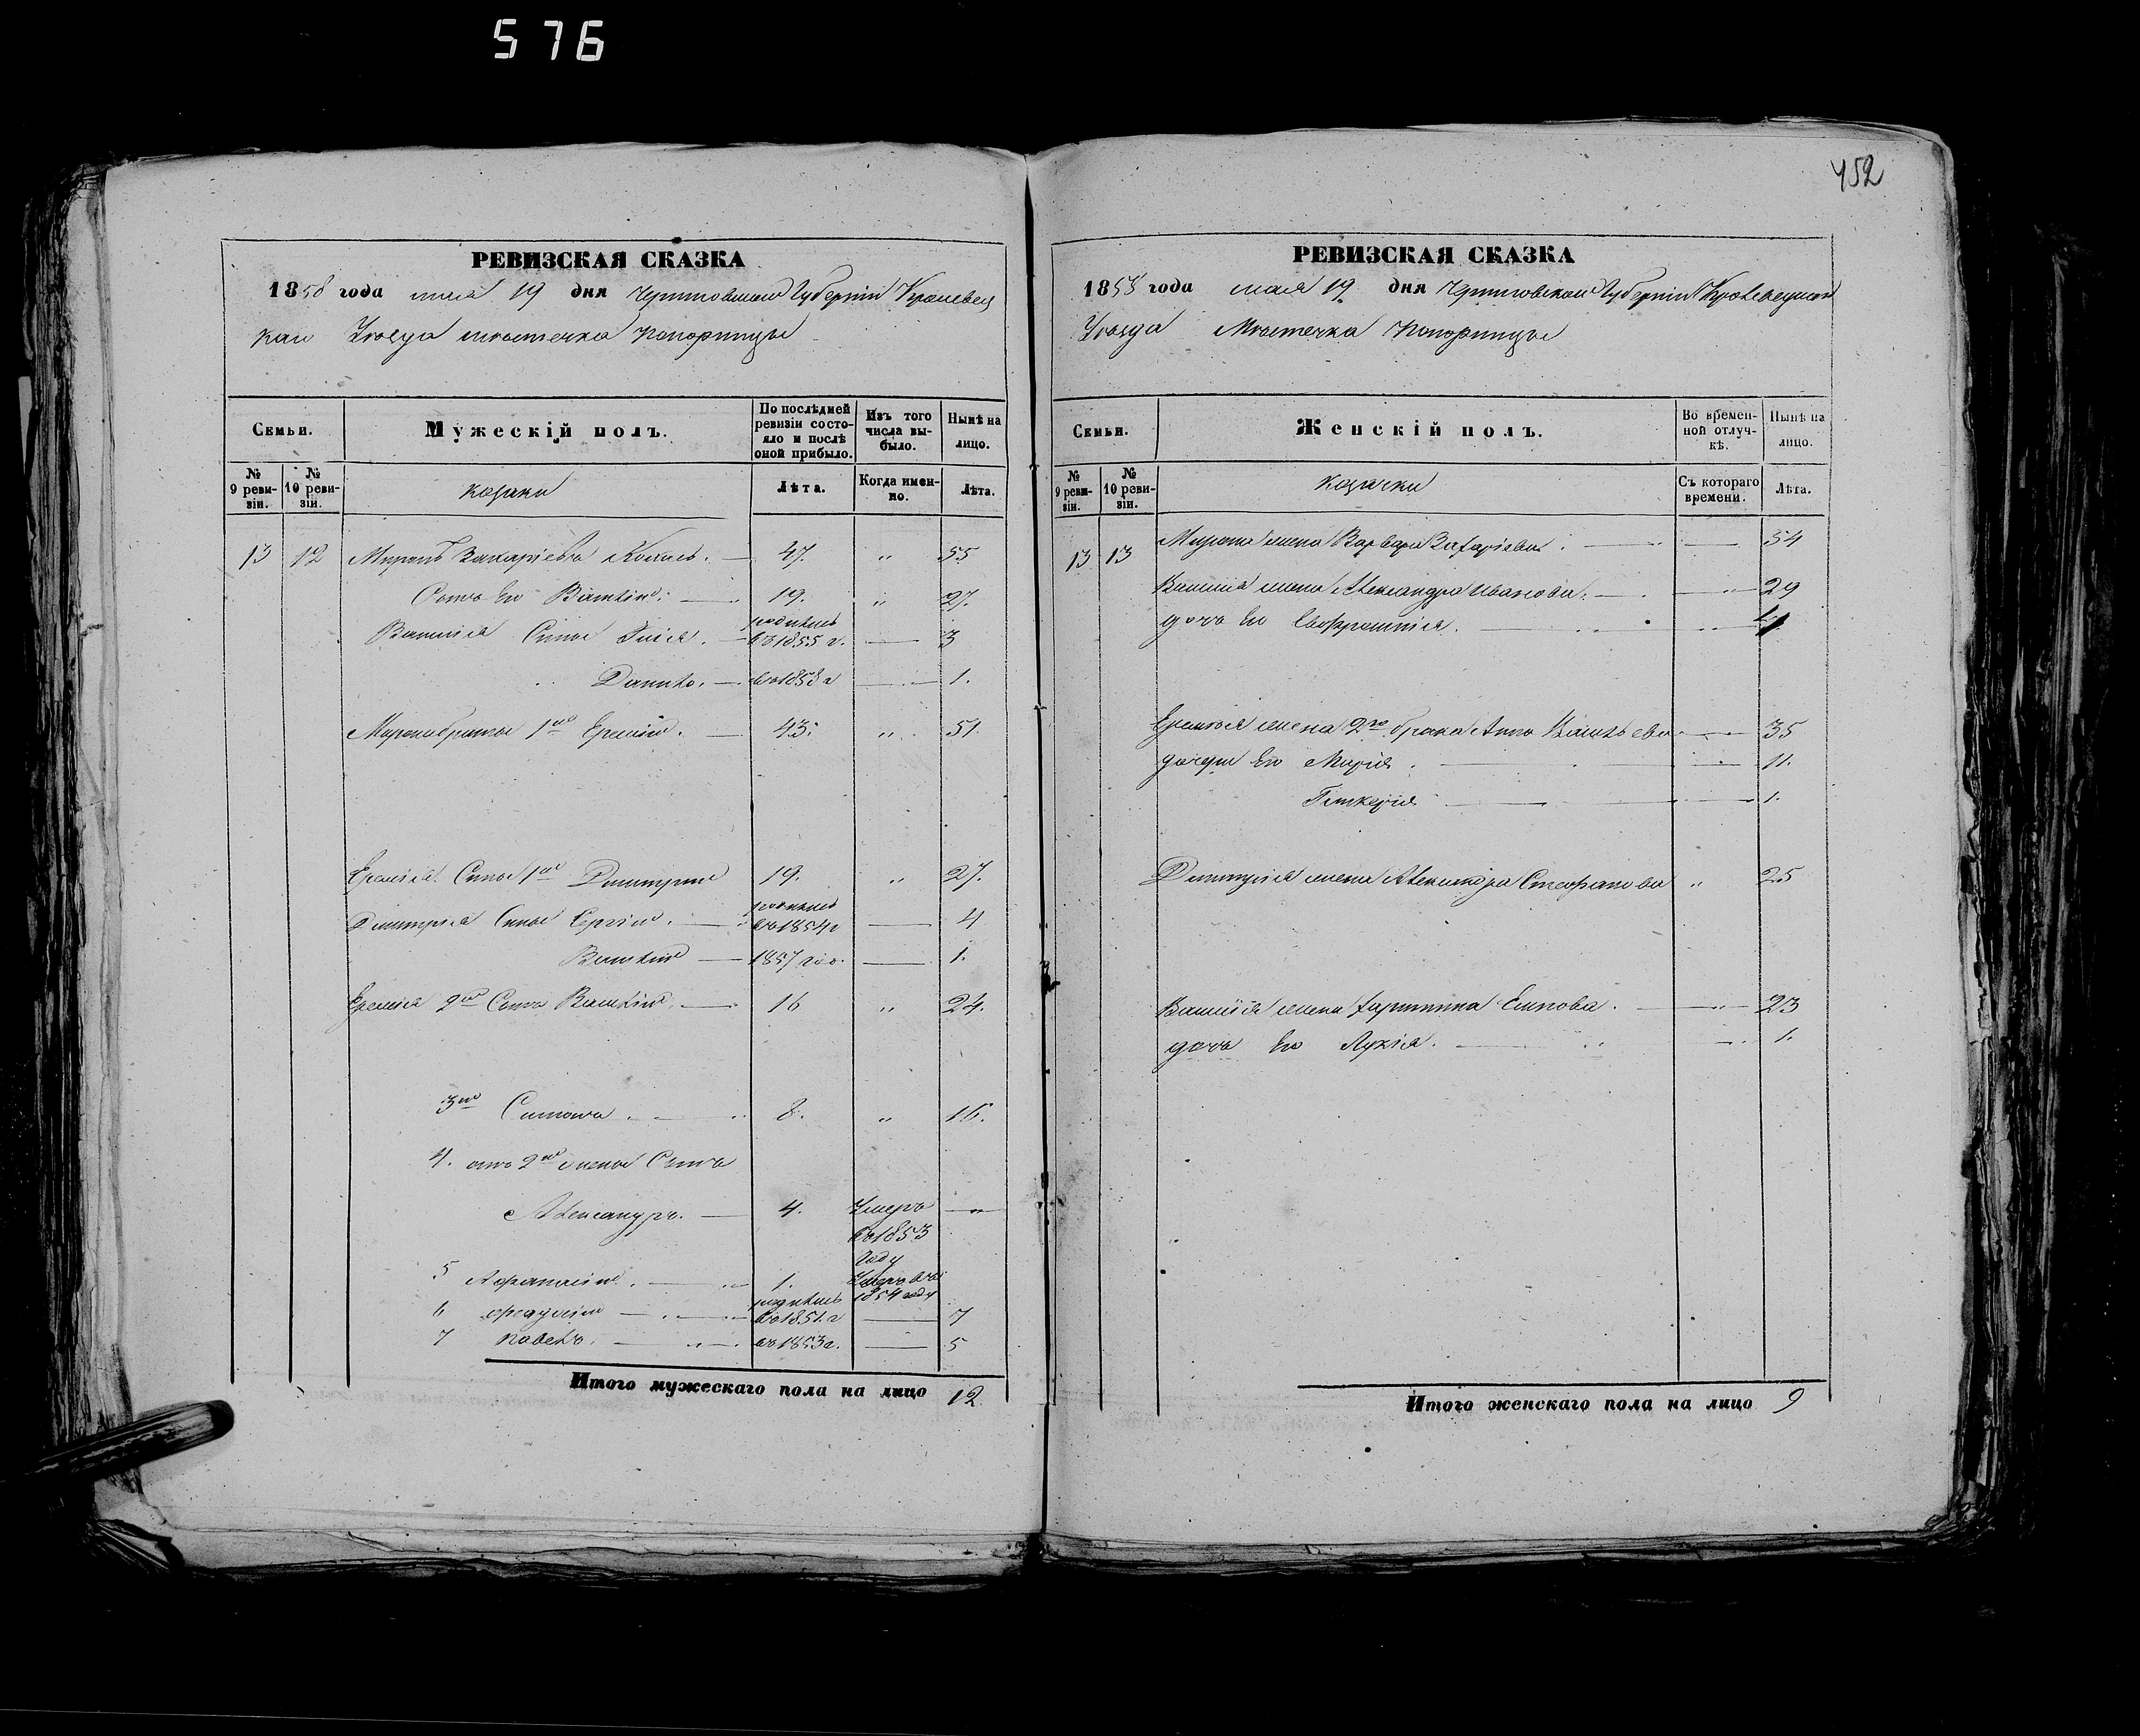 576
452
РЕВИЗСКАЯ СКАЗКА
1858 года мая 19 дня Черниговской Губерніи Кролевец
кого Уѣзда мѣстечка Понорницы
Семьи.
Мужескій полъ.
По послѣдней ревизіи состояло и послѣ оной прибыло.
Изъ того числа выбыло.
Нынѣ на лицо.
№ 9 ревизіи.
№ 10 ревизіи.
козаки
Лѣта.
Когда именно.
Лѣта.
13 12 Миронъ Захаріевъ 47. " 55
Сынъ его Василій. 19. " 27.
Василія Сины родился въ 1855 г. — 3
Данило. въ 1858 г — 1.
Мирона братья 1й Еремій. 43. " 51.
Еремія Сины 1й Димитрій 19. " 27.
Димитрія Сины Сергій. родился въ 1854 г — 4
Василій 1857 го. — 1.
Еремія 2й Сынъ Василій. 16 " 24.
3й Симонъ. 8. " 16.
4. отъ 2й жены Сынъ
Александръ. 4. Умеръ въ 1853 году —
5 Афанасій. 1. Умеръ въ 1854 году
6 родился въ 1851 г — 7
7 Павелъ. въ 1853 г. — 5
Итого мужескаго пола на лицо 12.
РЕВИЗСКАЯ СКАЗКА
1858 года мая 19 дня Черниговской Губерніи Кролевецкого
Уѣзда Мѣстечка Понорницы
Семьи.
Женскій полъ.
Во временной отлучкѣ.
Нынѣ на лицо.
№ 9 ревизіи.
№ 10 ревизіи.
козачки
Съ котораго времени.
Лѣта.
13 13 Мирона жена Варвара Захаріева. — 54
Василія жена Александра Иванова. — " 29
дочь его Евфросинія. "
Еремія жена 2го брака Анна Васильева — 35
дочери его Марія. — 11.
Гликерія — 1.
Димитрія жена Александра Стефанова " 25
Василія жена Харитина Осипова. — " 23
дочь его Лукія. — 1.
Итого женскаго пола на лицо 9